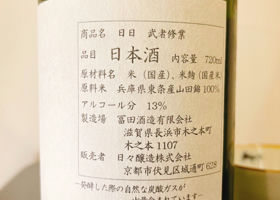 商品名 日日 武者修業
品目 日本酒 内容量 720ml
原材料名 米(国産)、米麹(国産米)
原料米 兵庫県東条産山田錦100%
アルコール分 13%
製造場 冨田酒造有限会社
滋賀県長浜市木之本町
木之本 1107
販売者 日々醸造株式会社
京都市伏見区城通町628
~発酵した際の自然な炭酸ガスが